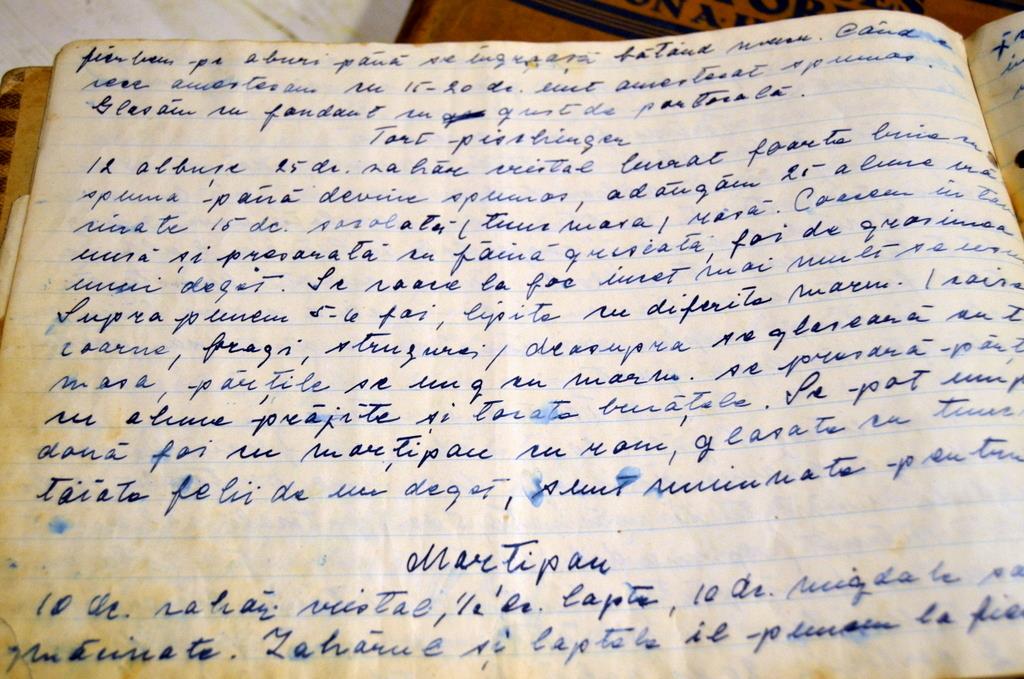 OBSEN
ON A
fierbem pe aburi până se îngroașă bătând mereu. Când e
rece amestecăm cu 15-20 dc. unt amestecat spumos.
Glasăm cu fondant cu gust de portocală.
Tort pischinger
12 albușe 25 dc. zahăr cristal lucrat foarte bine cu
spuma până devine spumos, adăugăm 25 alune mă
cinate 15 dc. socolată (turu masa) rasă. Coacem în ta
unsă și presarată cu făină grisiată, foi de grosimea
unui deget. Se coace la foc încet mai mult se us
Supra punem 5-6 foi, lipite cu diferite marm. (caise
coarne, fragi, struguri) deasupra se glasează cu t
masa, părțile se ung cu marm. se presară părț
cu alune prăjite și tocate bucățele. Se pot ump
două foi cu marțipan cu rom, glasate cu turu
tăiate felii de un deget, sunt minunate pentru
Marțipan
10 dc. zahăr cristal, 1/2 dc. lapte, 10 dc. migdale
măcinate. Zahărul și laptele îl punem la fie